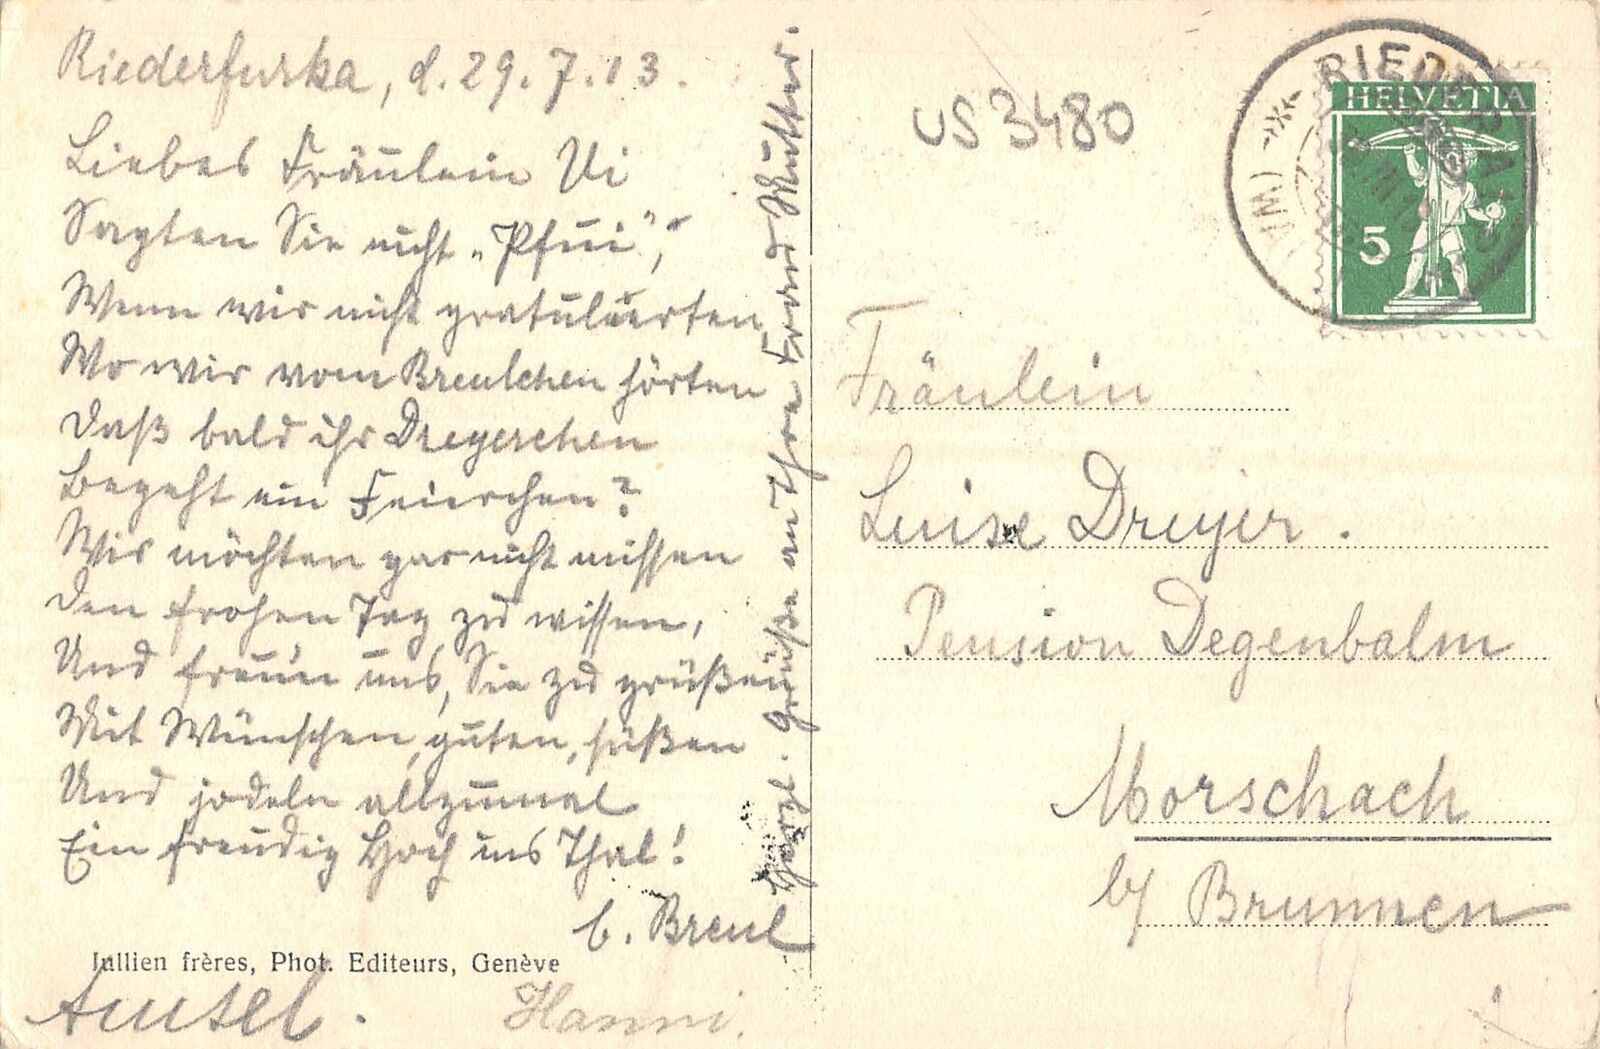 Riederfurka, d. 29.7.13.
Liebes Fräulein Vi
Sagten Sie nicht „Pfui“,
Wenn wir nicht gratulierten,
Wo wir vom Breulchen hörten
Daß bald ihr Dreyerchen
Begeht ein Feierchen?
Wir möchten gar nicht missen
Den frohen Tag zu wissen,
Und freu'n uns, Sie zu grüßen
Mit Wünschen, guten, süßen
Und jodeln allzumal
Ein freudig Hoch ins Thal!
Breul
Amsel.
Hanni.
Herzl. Grüße an Ihre Frau Mutter.
Jullien frères, Phot. Editeurs, Genève
US 3480
HELVETIA
5
Fräulein
Luise Dreyer.
Pension Degenbalm
Morschach
b/ Brunnen